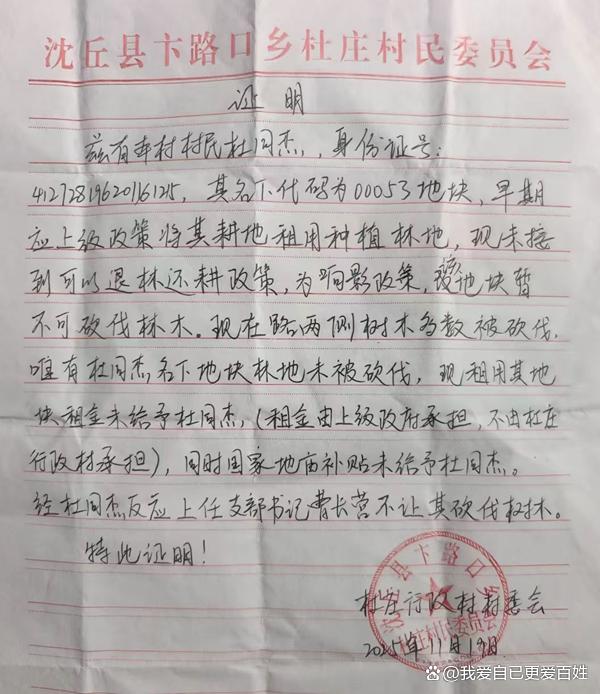 沈丘县卞路口乡杜庄村民委员会
证明
兹有奉村村民杜同杰,身份证号:
412728196201161215,其名下代码为00053地块,早期
应上级政策将其耕地租用种植林地,现未接
到可以退林还耕政策,为响影政策,该地块暂
不可砍伐林木.现在路两侧树木多数被砍伐.
唯有杜同杰名下地块林地未被砍伐,现租用其地
块租金未给予杜同杰,(租金由上级政府承担,不由杜庄
行政村承担),同时国家地亩补贴未给予杜同杰。
经杜同杰反应上任支部书记曹长营不让其砍伐树木。
特此证明!
杜庄行政村村委会
2025年11月19日.
头条 @我爱自己更爱百姓